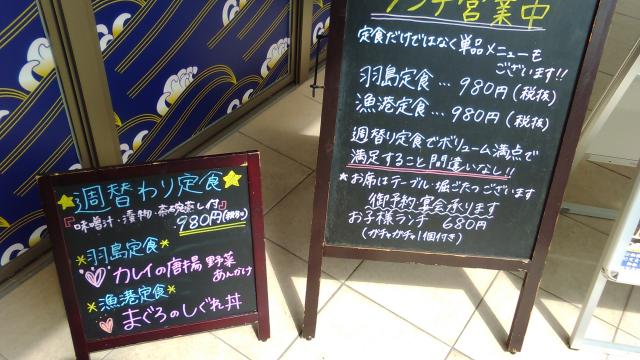 週替わり定食
『味噌汁・漬物・茶碗蒸し付』
980円(税抜)
羽島定食
カレイの唐揚 野菜
あんかけ
漁港定食
まぐろのしぐれ丼
ランチ営業中
定食だけではなく単品メニューも
ございます!!
羽島定食…980円(税抜)
漁港定食…980円(税抜)
週替り定食でボリューム満点で
満足すること間違いなし!!
★お席はテーブル・堀ごたつございます
御予約・宴会承ります
お子様ランチ 680円
(ガチャガチャ1個付き)